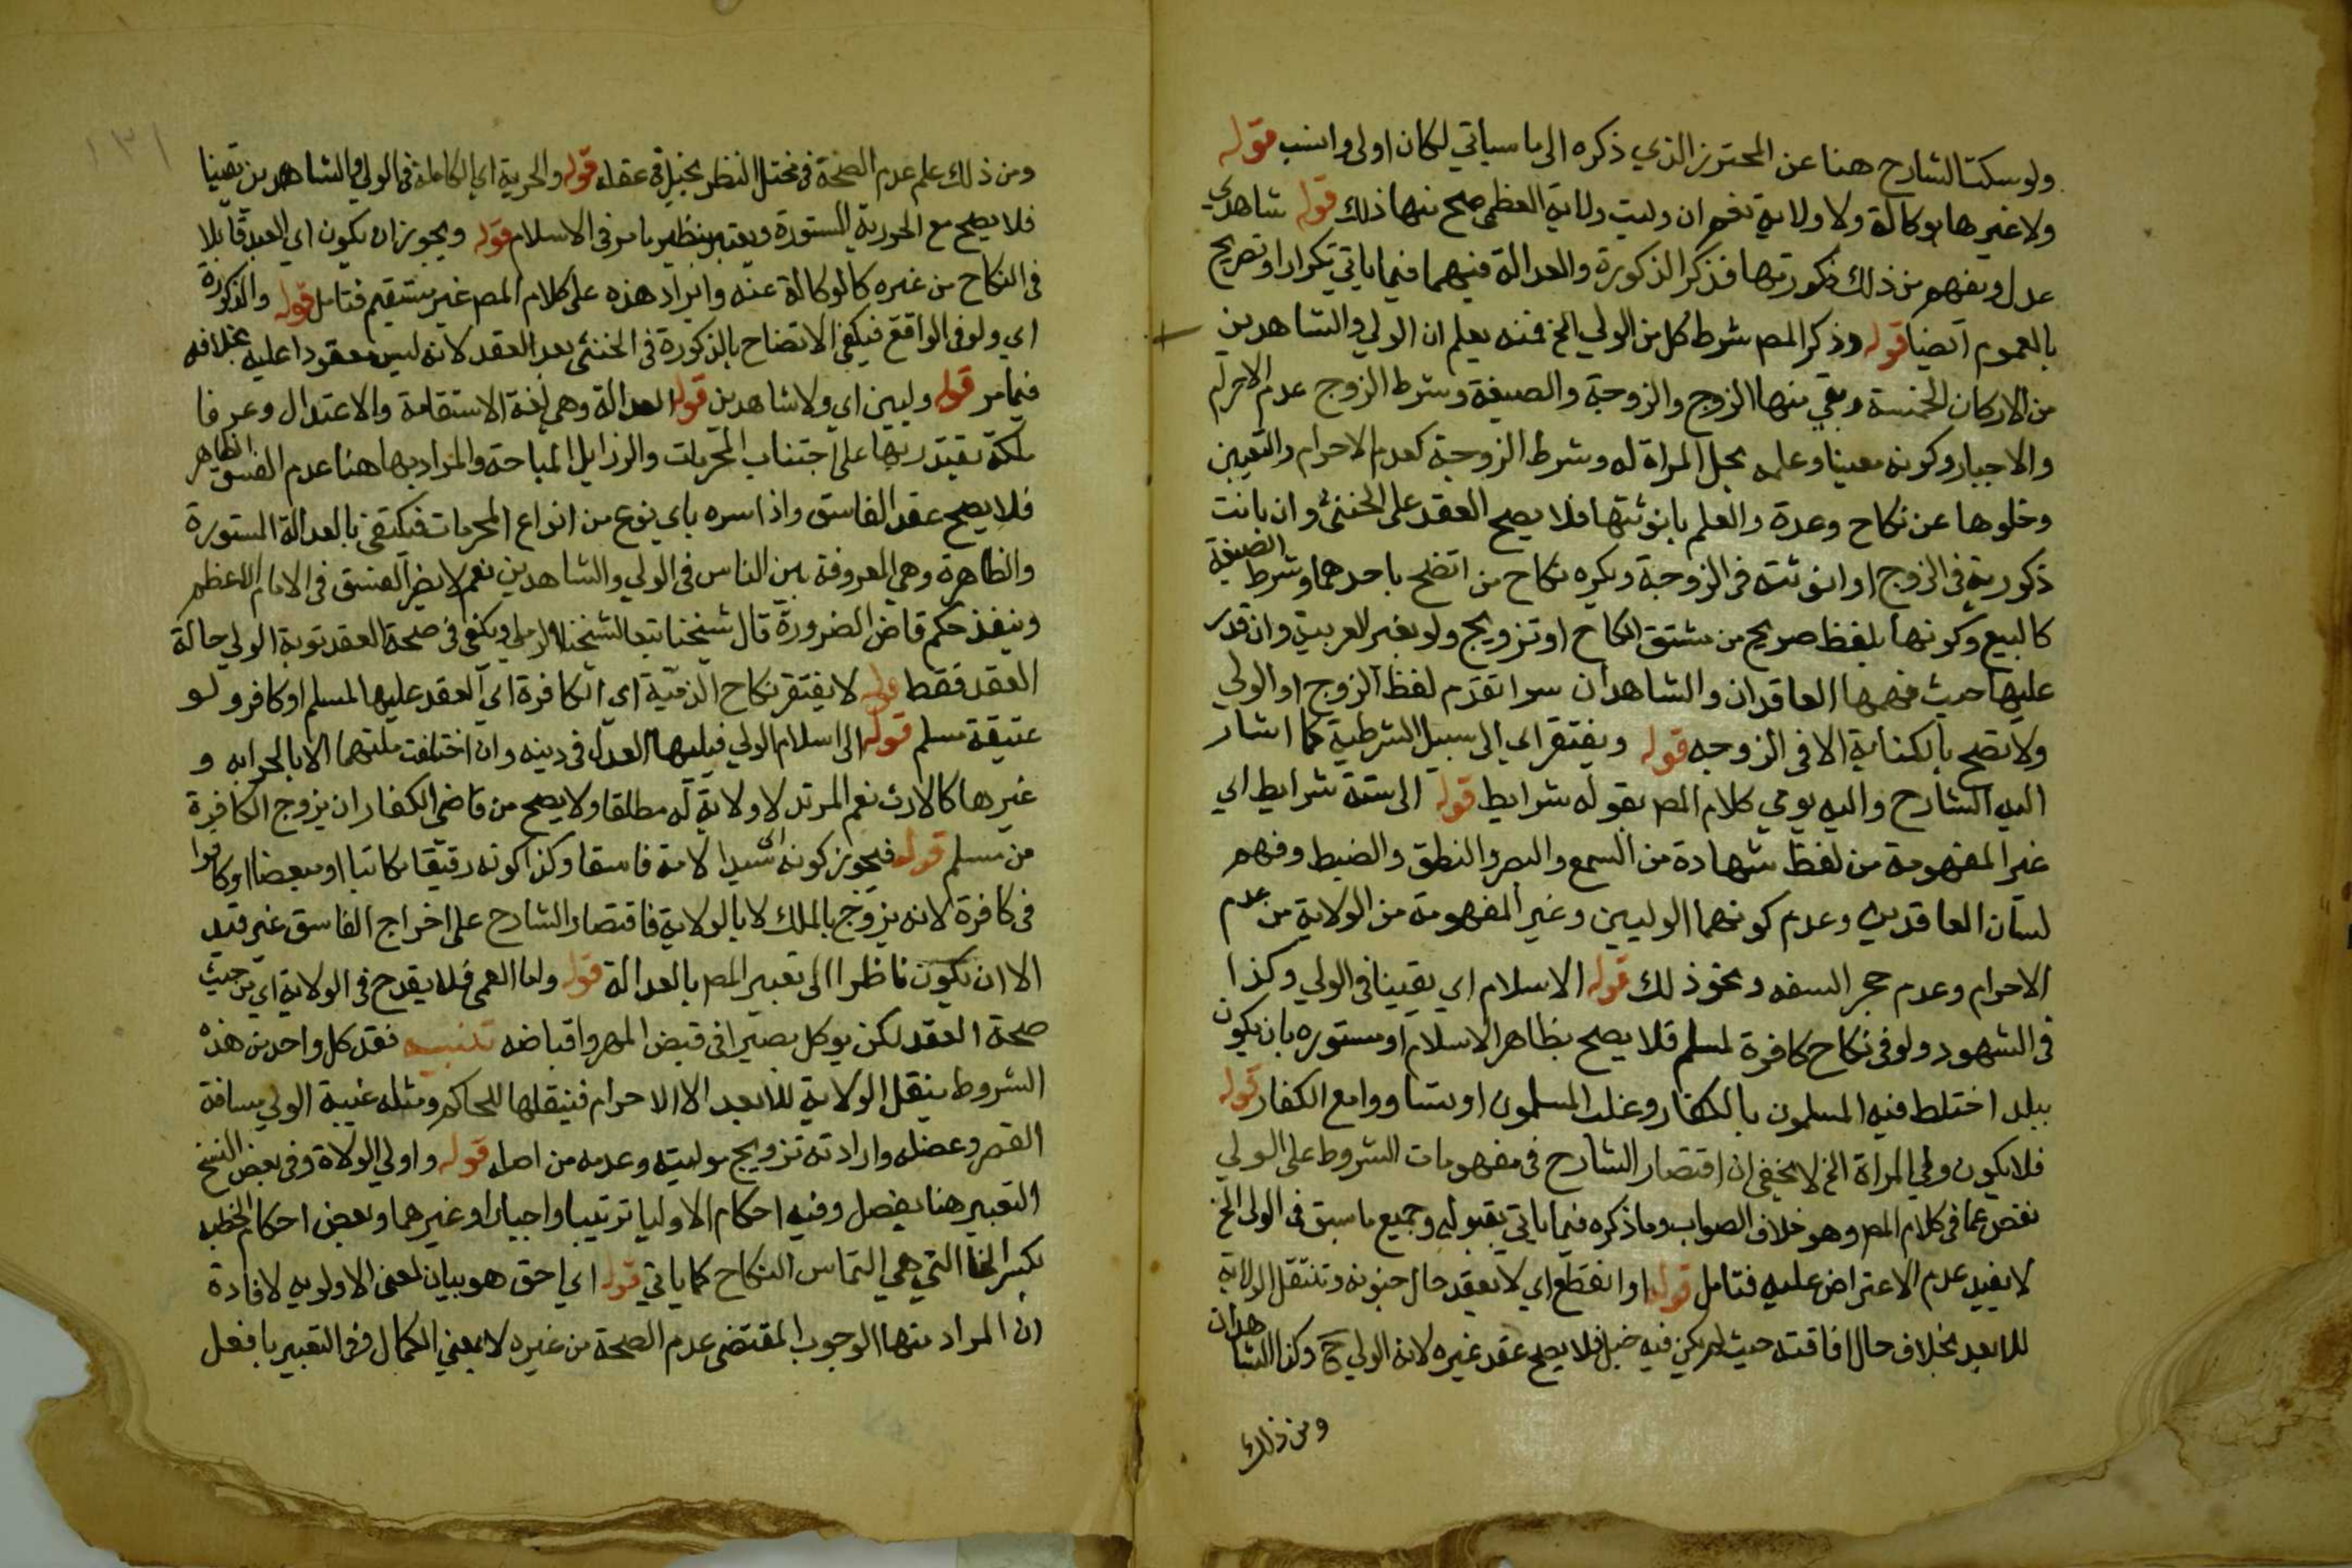 ولو سكت الشارح هنا عن المحترز الذي ذكره الى ما سياتي لكان اولى وانسب قوله
ولا غيرها بوكالة ولا ولاية نعم ان وليت ولاية العظمى صح منها ذلك قوله شاهدي
عدل ويفهم من ذلك ذكورتهما فذكر الذكورة والعدالة فيهما فيما ياتي تكرار او تصريح
بالعموم ايضا قوله وذكر المصـ شرط كل من الولي الخ فمنه يعلم ان الولي والشاهدين
من الاركان الخمسة وبقي منها الزوج والزوجة والصيغة وشرط الزوج عدم الاحرام
والاجبار وكونه معينا وعلمه بحل المراة له وشرط الزوجة كعدم الاحرام والتعيين
وخلوها عن نكاح وعدة والعلم بانوثتها فلا يصح العقد على الخنثى وان بانت
ذكوريته في الزوج او انوثته في الزوجة ويكره نكاح من اتضح باحدهما وشرط الصيغة
كالبيع وكونها بلفظ صريح من مشتق انكاح او تزويج ولو بغير العربية وان قدر
عليها حيث فهمها العاقدان والشاهدان سوا تقدم لفظ الزوج او الولي
ولا تصح بالكناية الا في الزوجه قوله ويفتقر اي الى سبيل الشرطية كما اشار
اليه الشارح واليه يومي كلام المصـ بقوله شرايط قوله الى ستة شرايط اي
غير المفهومة من لفظ شهادة من السمع والبصر والنطق والضبط وفهم
لسان العاقدين وعدم كونهما الوليين وغير المفهومة من الولاية من عدم
الاحرام وعدم حجر السفه ونحو ذلك قوله الاسلام اي يقينا في الولي وكذا
في الشهود ولو في نكاح كافرة لمسلم فلا يصح بظاهر الاسلام او مستوره بان يكون
ببلد اختلط فيه المسلمون بالكفار وغلب المسلمون او تساووا مع الكفار قوله
فلا يكون ولي المراة الخ لا يخفى ان اقتصار الشارح في مفهومات الشروط على الولي
نقص عما في كلام المصـ وهو خلاف الصواب وما ذكره فيما ياتي بقوله وجميع ما سبق في الولي الخ
لا يفيد عدم الاعتراض عليه فتامل قوله او انقطع اي لا يعقد حال جنونه وتنتقل الولاية
للابعد بخلاف حال افاقته حيث لم يكن فيه خبل فلا يصح عقد غيره لانه الولي ح وكذا الشاهدان
ومن ذلك
١٣١
ومن ذلك علم عدم الصحة في مختل النظر بخبل في عقله قوله والحرية اي الكاملة في الولي والشاهدين يقينا
فلا يصح مع الحورية المستورة ويعتبر نظير ما مر في الاسلام قوله ويجوز ان يكون اي العبد قابلا
في النكاح من غيره كالوكالة عنه وايراد هذه على كلام المصـ غير مستقيم فتامل قوله والذكورة
اي ولو في الواقع فيكفي الاتضاح بالذكورة في الخنثى بعد العقد لانه ليس معقودا عليه بخلافه
فيما مر قوله وليين اي ولا شاهدين قوله العدالة وهي لغة الاستقامة والاعتدال وعرفا
ملكة يقتدر بها على اجتناب المحرمات والرذايل المباحة والمراد بها هنا عدم الفسق الظاهر
فلا يصح عقد الفاسق واذا اسره باي نوع من انواع المحرمات فيكتفى بالعدالة المستورة
والظاهرة وهي المعروفة بين الناس في الولي والشاهدين نعم لا يضر الفسق في الامام الاعظم
وينفذ حكم قاضي الضرورة قال شيخنا تبعا لشيخنا الرملي ويكفي في صحة العقد توبة الولي حالة
العقد فقط قوله لا يفتقر نكاح الذمية اي الكافرة اي العقد عليها لمسلم او كافر ولو
عتيقة مسلم قوله الى اسلام الولي فيليها العدل في دينه وان اختلفت ملتهما الا بالحرابه و
غيرها كالارث نعم المرتد لا ولاية له مطلقا ولا يصح من قاضي الكفار ان يزوج الكافرة
من مسلم قوله فيجوز كونه اي سيد الامة فاسقا وكذا كونه رقيقا مكاتبا او مبعضا او كافرا
في كافرة لانه يزوج بالملك لا بالولاية فاقتصار الشارح على اخراج الفاسق غير قيد
الا ان يكون ناظرا الى تعبير المصـ بالعدالة قوله واما العمى فلا يقدح في الولاية اي من حيث
صحة العقد لكن يوكل بصيرا في قبض المهر واقباضه تنبيه فقد كل واحد من هذه
الشروط ينقل الولاية للابعد الا الاحرام فينقلها للحاكم ومثله غيبة الولي مسافة
القصر وعضله وارادته تزويج موليته وعدمه من اصله قوله واولي الولاة وفي بعض النسخ
التعبير هنا بفصل وفيه احكام الاوليا ترتيبا واجبارا وغيرهما وبعض احكام الخطبه
بكسر الخا التي هي التماس النكاح كما ياتي قوله اي احق هو بيان لمعنى الاولويه لافادة
ان المراد منها الوجوب المقتضي عدم الصحة من غيره لا بمعنى الكمال وفي التعبير بافعل